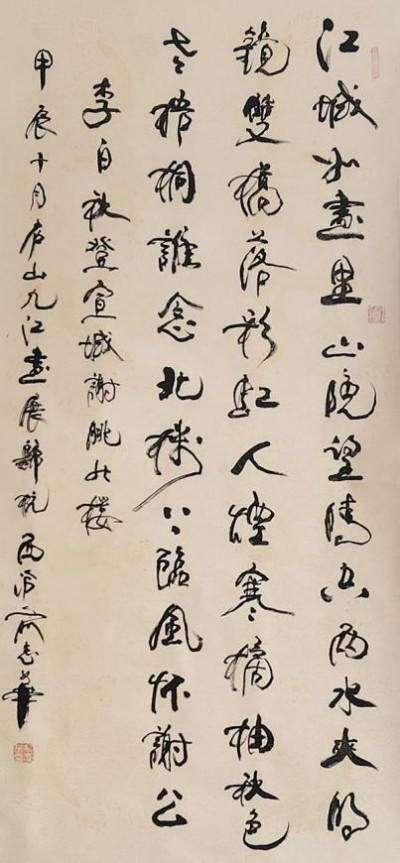 江城如畫里山曉望晴空两水夾明
鏡雙橋落彩虹人煙寒橘柚秋色
老梧桐誰念北樓上臨風怀謝公
李白秋登宣城謝朓北楼
甲辰十月庐山九江畫展歸杭西泠俞志華